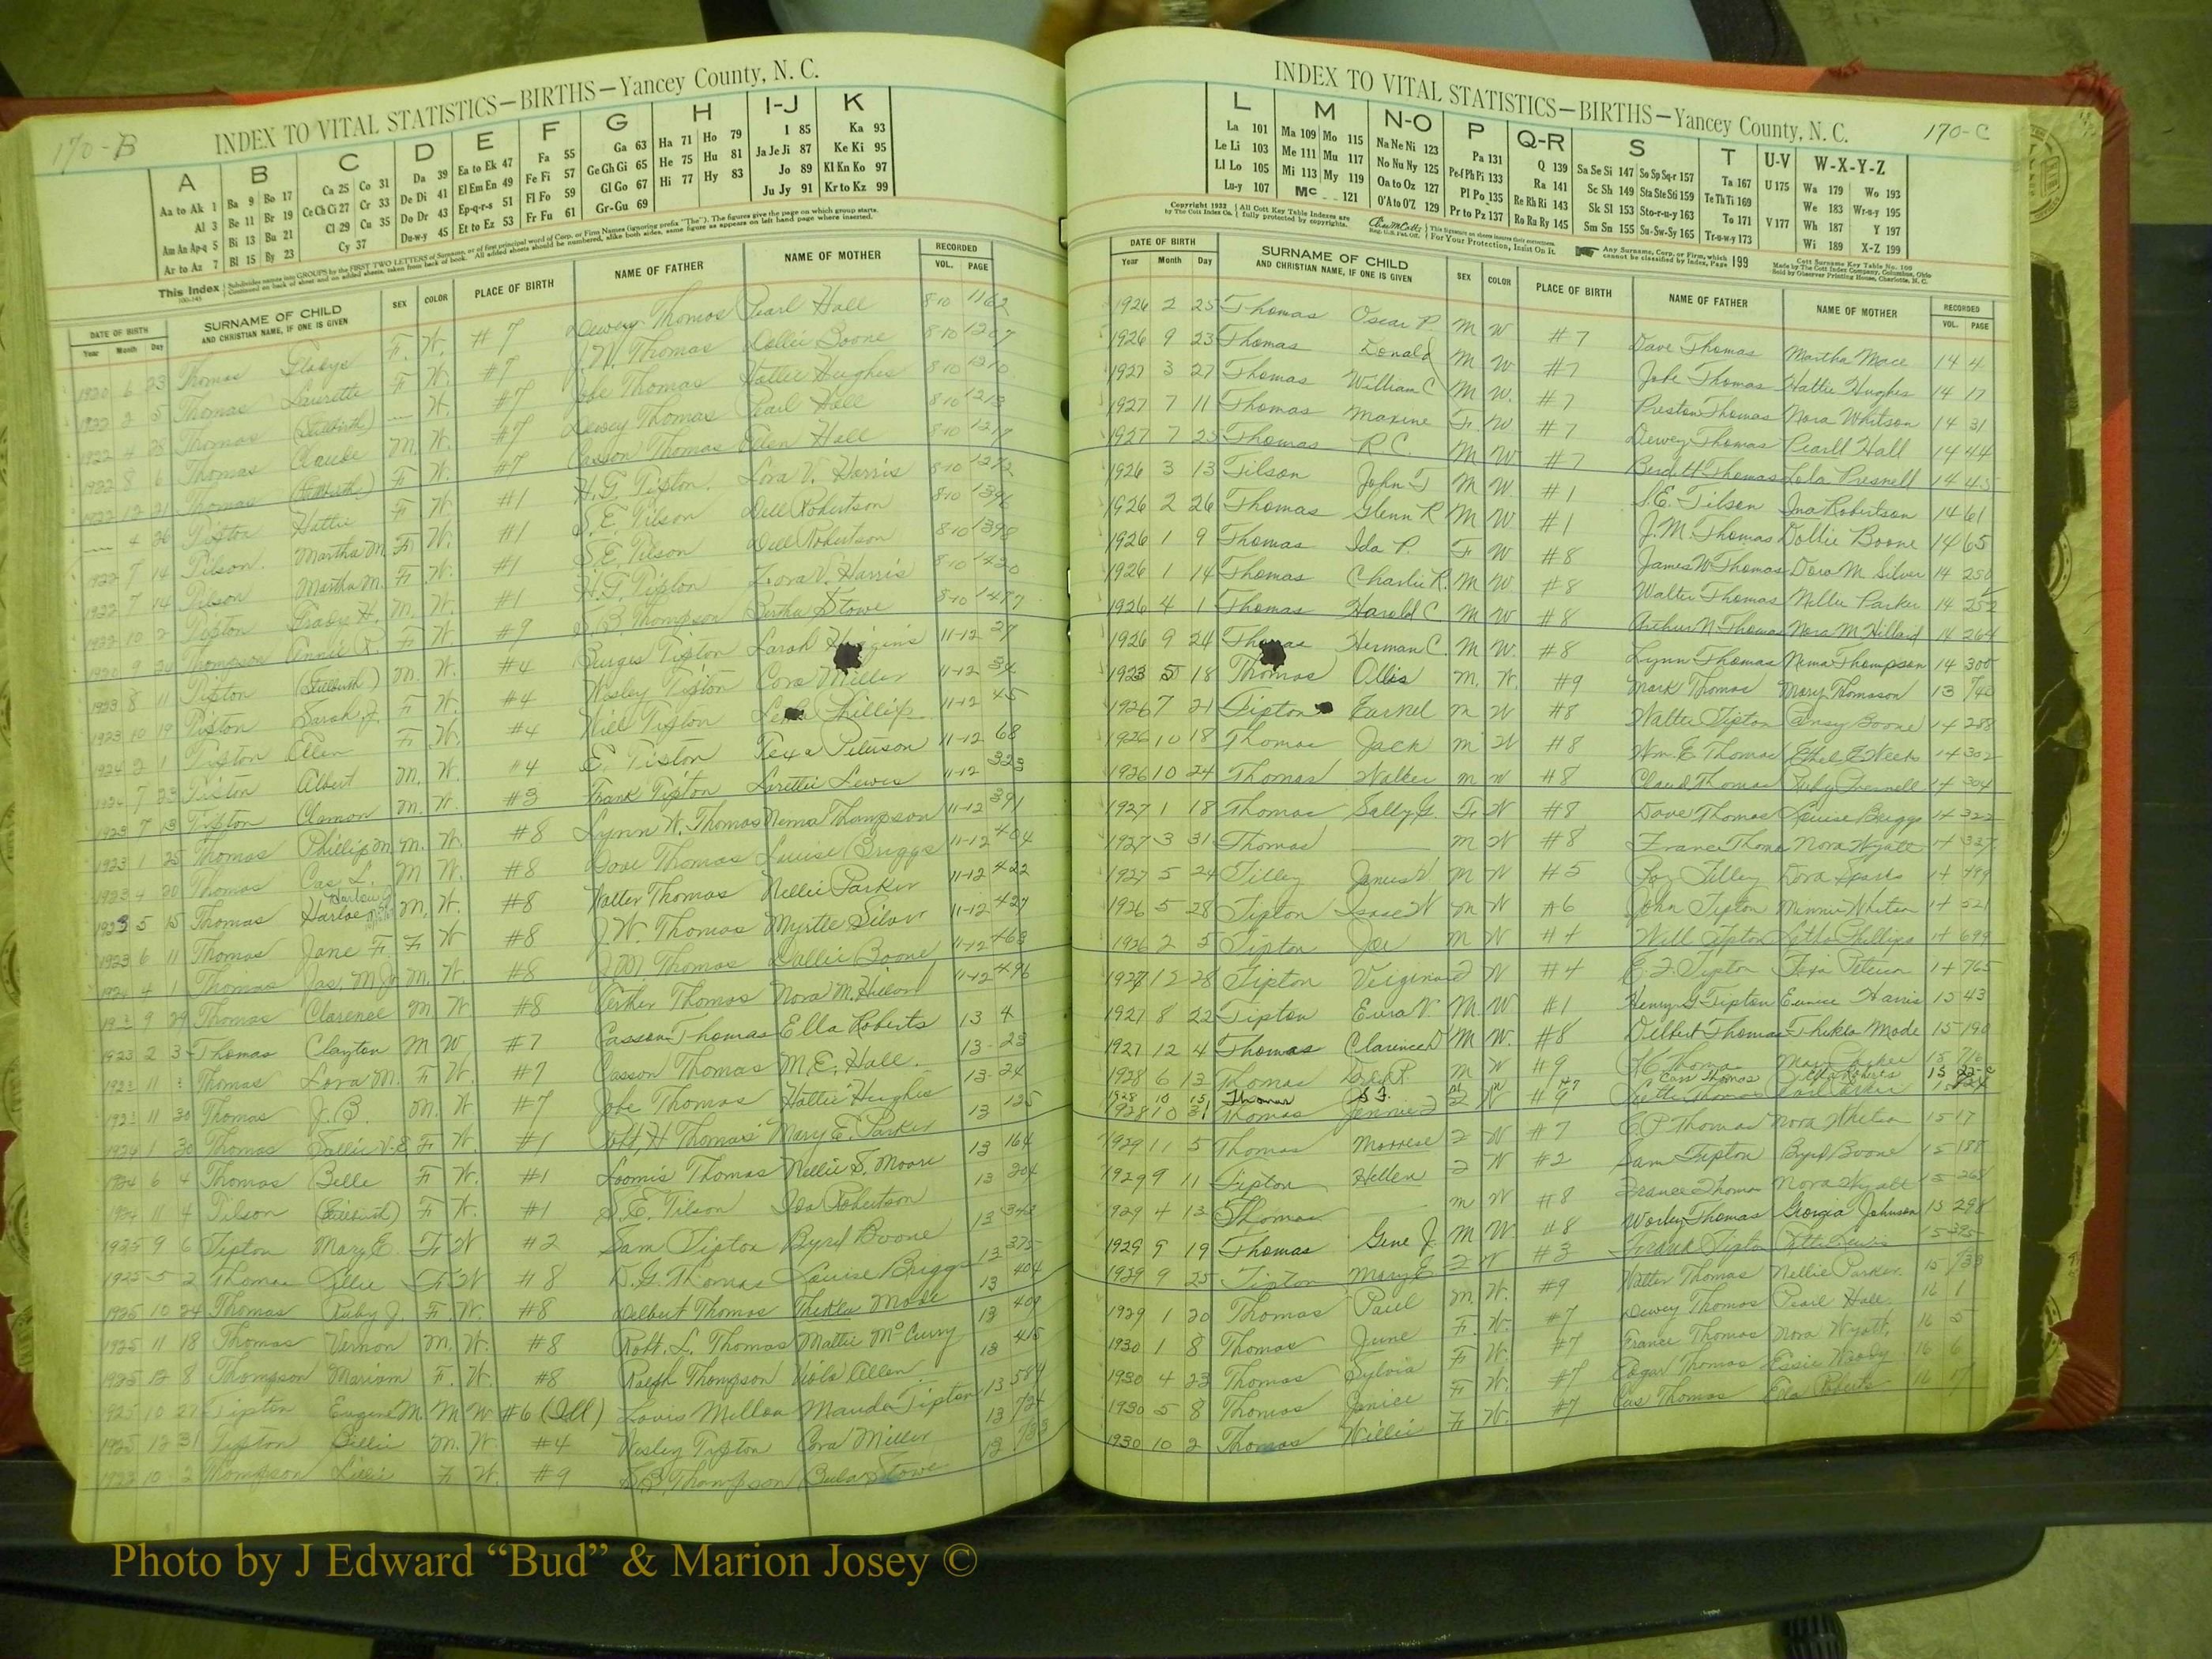 170-B
INDEX TO VITAL STATISTICS—BIRTHS—Yancey County, N. C.
A B C D E F G H I-J K
Aa to Ak 1 Ba 9 Bo 17 Ca 25 Co 31 Da 39 Ea to Ek 47 Fa 55 Ga 63 Ha 71 Ho 79 I 85 Ka 93
Al 3 Be 11 Br 19 Ce Ch Ci 27 Cr 33 De Di 41 El Em En 49 Fe Fi 57 Ge Gh Gi 65 He 75 Hu 81 Ja Je Ji 87 Ke Ki 95
Am An Ap-q 5 Bi 13 Bu 21 Cl 29 Cu 35 Do Dr 43 Ep-q-r-s 51 Fl Fo 59 Gl Go 67 Hi 77 Hy 83 Jo 89 Kl Kn Ko 97
Ar to Az 7 Bl 15 By 23 Cy 37 Du-w-y 45 Et to Ez 53 Fr Fu 61 Gr-Gu 69 Ju Jy 91 Kr to Kz 99
DATE OF BIRTH SURNAME OF CHILD SEX COLOR PLACE OF BIRTH NAME OF FATHER NAME OF MOTHER RECORDED
Year Month Day AND CHRISTIAN NAME, IF ONE IS GIVEN VOL. PAGE
1920 6 23 Thomas Gladys F. W. #7 Dewey Thomas Pearl Hall 8-10 1162
1922 2 5 Thomas Laurette F W. #7 Thomas Dollie Boone 8-10 1207
1922 4 28 Thomas (Stillbirth) — W. #7 Jobe Thomas Hattie Hughes 8-10 1210
1922 8 6 Thomas Claude M. W. #7 Dewey Thomas Pearl Hall 8-10 1213
1922 12 21 Thomas (Stillbirth) F W. #7 Casson Thomas Ellen Hall 8-10 1217
— 4 26 Tipton Hattie F W. #1 H. G. Tipton Lora V. Harris 8-10 1272
1922 7 14 Tilson Martha M. F. W. #1 S. E. Tilson Dell Robertson 8-10 1396
1922 7 14 Tilson Martha M. F. W. #1 S. E. Tilson Dell Robertson 8-10 1398
1922 10 2 Tipton Grady H. M. W. #1 H. G. Tipton Lora V. Harris 8-10 1420
1920 9 26 Thompson Annie R. F W. #9 S. B. Thompson Bertha Stowe 8-10 1477
1923 8 11 Tipton (Stillbirth) M. W. #4 Burges Tipton Sarah 11-12 27
1923 10 19 Tipton Sarah J. F W. #4 Wesley Tipton Cora Miller 11-12 34
1924 2 1 Tipton Ellen F W. #4 Will Tipton Phillips 11-12 45
1924 7 23 Tipton Albert M. W. #4 E. Tipton Texa Peterson 11-12 68
1923 7 13 Tipton Clamon M. W. #3 Frank Tipton Lorettie Lewis 11-12 323
1923 1 25 Thomas Phillip M. M. W. #8 Lynn W. Thomas Nema Thompson 11-12 391
1923 4 20 Thomas Cas L. M W. #8 Dave Thomas Louise Briggs 11-12 404
1923 5 15 Thomas Harloe M. W. #8 Walter Thomas Nellie Parker 11-12 422
1923 6 11 Thomas Jane F. F W #8 J. W. Thomas Myrtle Silver 11-12 427
1924 4 1 Thomas Jas. M. Jr. M. W. #8 J. M. Thomas Dollie Boone 11-12 463
9 29 Thomas Clarence M W #8 Arthur Thomas Nora M. 11-12 496
1923 2 3 Thomas Clayton M W #7 Casson Thomas Ella Roberts 13 4
11 Thomas Lora M. F W. #7 Casson Thomas M. E. Hall. 13-23
11 30 Thomas J. B. M. W #7 Jobe Thomas Hattie Hughes 13-24
1924 1 30 Thomas Sallie V. E F. W. #1 Robt. H Thomas Mary E. Parker 13 125
1924 6 4 Thomas Belle F W. #1 Loomis Thomas Nellie S. Moore 13 164
1924 11 4 Tilson (Stillbirth) F W. #1 S. E. Tilson Ida Robertson 13 204
1925 9 6 Tipton Mary E. F W #2 Sam Tipton Byrd Boone 13 342
1925 5 2 Thomas Lillie F W #8 D. G. Thomas Louise Briggs 13 375
1925 10 24 Thomas Ruby J. F. W. #8 Delbert Thomas Thekla Mode 13 404
1925 11 18 Thomas Vernon M. W. #8 Robt. L. Thomas Mattie McCurry 13 409
1925 12 8 Thompson Mariam F. W. #8 Ralph Thompson Viola Allen 13 415
1925 10 27 Tipton Eugene M. M W #6 (Ill) Louis Mellon Maude Tipton 13 584
1925 12 31 Tipton Billie M. W. #4 Wesley Tipton Cora Miller 13 724
1923 10 2 Thompson F W. #9 S. B. Thompson Beula Stowe 13 783
170-C
INDEX TO VITAL STATISTICS—BIRTHS—Yancey County, N. C.
L M N-O P Q-R S T U-V W-X-Y-Z
La 101 Ma 109 Mo 115 Na Ne Ni 123 Pa 131 Q 139 Sa Se Si 147 So Sp Sq-r 157 Ta 167 U 175 Wa 179 Wo 193
Le Li 103 Me 111 Mu 117 No Nu Ny 125 Pe-f Ph Pi 133 Ra 141 Sc Sh 149 Sta Ste Sti 159 Te Th Ti 169 We 183 Wr-u-y 195
Ll Lo 105 Mi 113 My 119 Oa to Oz 127 Pl Po 135 Re Rh Ri 143 Sk Sl 153 Sto-r-u-y 163 To 171 V 177 Wh 187 Y 197
Lu-y 107 Mc 121 O'A to O'Z 129 Pr to Pz 137 Ro Ru Ry 145 Sm Sn 155 Su-Sw-Sy 165 Tr-u-w-y 173 Wi 189 X-Z 199
DATE OF BIRTH SURNAME OF CHILD SEX COLOR PLACE OF BIRTH NAME OF FATHER NAME OF MOTHER RECORDED
Year Month Day AND CHRISTIAN NAME, IF ONE IS GIVEN VOL. PAGE
1926 2 25 Thomas Oscar P. M W #7 Dave Thomas Martha Mace 14 4
1926 9 23 Thomas Donald M W #7 Jobe Thomas Hattie Hughes 14 17
1927 3 27 Thomas William C M W. #7 Preston Thomas Nora Whitson 14 31
1927 7 11 Thomas Maxine F. W #7 Dewey Thomas Pearll Hall 14 44
1927 7 25 Thomas R. C. M W #7 Thomas Lola Presnell 14 45
1926 3 13 Tilson John T M W. #1 S. E. Tilson Ina Robertson 14 61
1926 2 26 Thomas Glenn R M W #1 J. M. Thomas Dollie Boone 14 65
1926 1 9 Thomas Ida P. F W #8 James W Thomas Dora M Silver 14 250
1926 1 14 Thomas Charlie R. M W. #8 Walter Thomas Nellie Parker 14 252
1926 4 1 Thomas Harold C M W #8 Arthur N Thomas Nora M Hillard 14 264
1926 9 24 Thomas Herman C. M W. #8 Lynn Thomas Nema Thompson 14 300
1923 5 18 Thomas Ollis M. W. #9 Mark Thomas Mary Thomason 13 740
1926 7 21 Tipton Earnel M W #8 Walter Tipton Pansy Boone 14 288
1926 10 18 Thomas Jack M W #8 Wm. E. Thomas Ethel E Weeks 14 302
1926 10 24 Thomas Walker M W #8 Claud Thomas Ruby Presnell 14 304
1927 1 18 Thomas Sally G. F W #8 Dave Thomas Louise Briggs 14 322
1927 3 31 Thomas — M W #8 France Thomas Nora Wyatt 14 337
1927 5 24 Tilley James V M W #5 Roy Tilley Dora Sparks 14 499
1926 5 28 Tipton Isaac W M W #6 John Tipton Minnie Whitson 14 521
1926 2 5 Tipton Joe M W #4 Will Tipton Letha Phillips 14 699
1927 12 28 Tipton Virginia F W #4 E. F. Tipton Texa Peterson 14 765
1927 8 22 Tipton Ezra V. M. W #1 Henry G Tipton Eunice Harris 15 43
1927 12 4 Thomas Clarence D M W. #8 Delbert Thomas Thekla Mode 15 190
1928 6 13 Thomas M W #9 Thomas Mary Parker 15 716
1928 10 15 Thomas S. F. M W #7 Cass Thomas Ella Roberts 15 22-C
1928 10 31 Thomas Jennie F F W #9 Thomas 15 724
1929 11 5 Thomas Morrese F W #7 C. P Thomas Nora Whitson 15 17
1929 9 11 Tipton Hellen F W #2 Sam Tipton Byrd Boone 15 188
1929 4 13 Thomas M W #8 France Thomas Nora Wyatt 15 268
1929 9 19 Thomas Gene J. M W. #8 Worley Thomas Georgia Johnson 15 298
1929 9 25 Tipton Mary E F W #3 Frank Tipton Lewis 15 395
1929 1 20 Thomas Paul M. W. #9 Walter Thomas Nellie Parker 15 733
1930 1 8 Thomas June F. W. #7 Dewey Thomas Pearl Hall 16 1
1930 4 23 Thomas Sylvia F W. #7 France Thomas Nora Wyatt, 16 5
1930 5 8 Thomas Janice F W. #7 Edgar Thomas Essie Woody 16 6
1930 10 2 Thomas Willie F W. #7 Cas Thomas Ella Roberts 16 17
Photo by J Edward “Bud” & Marion Josey ©